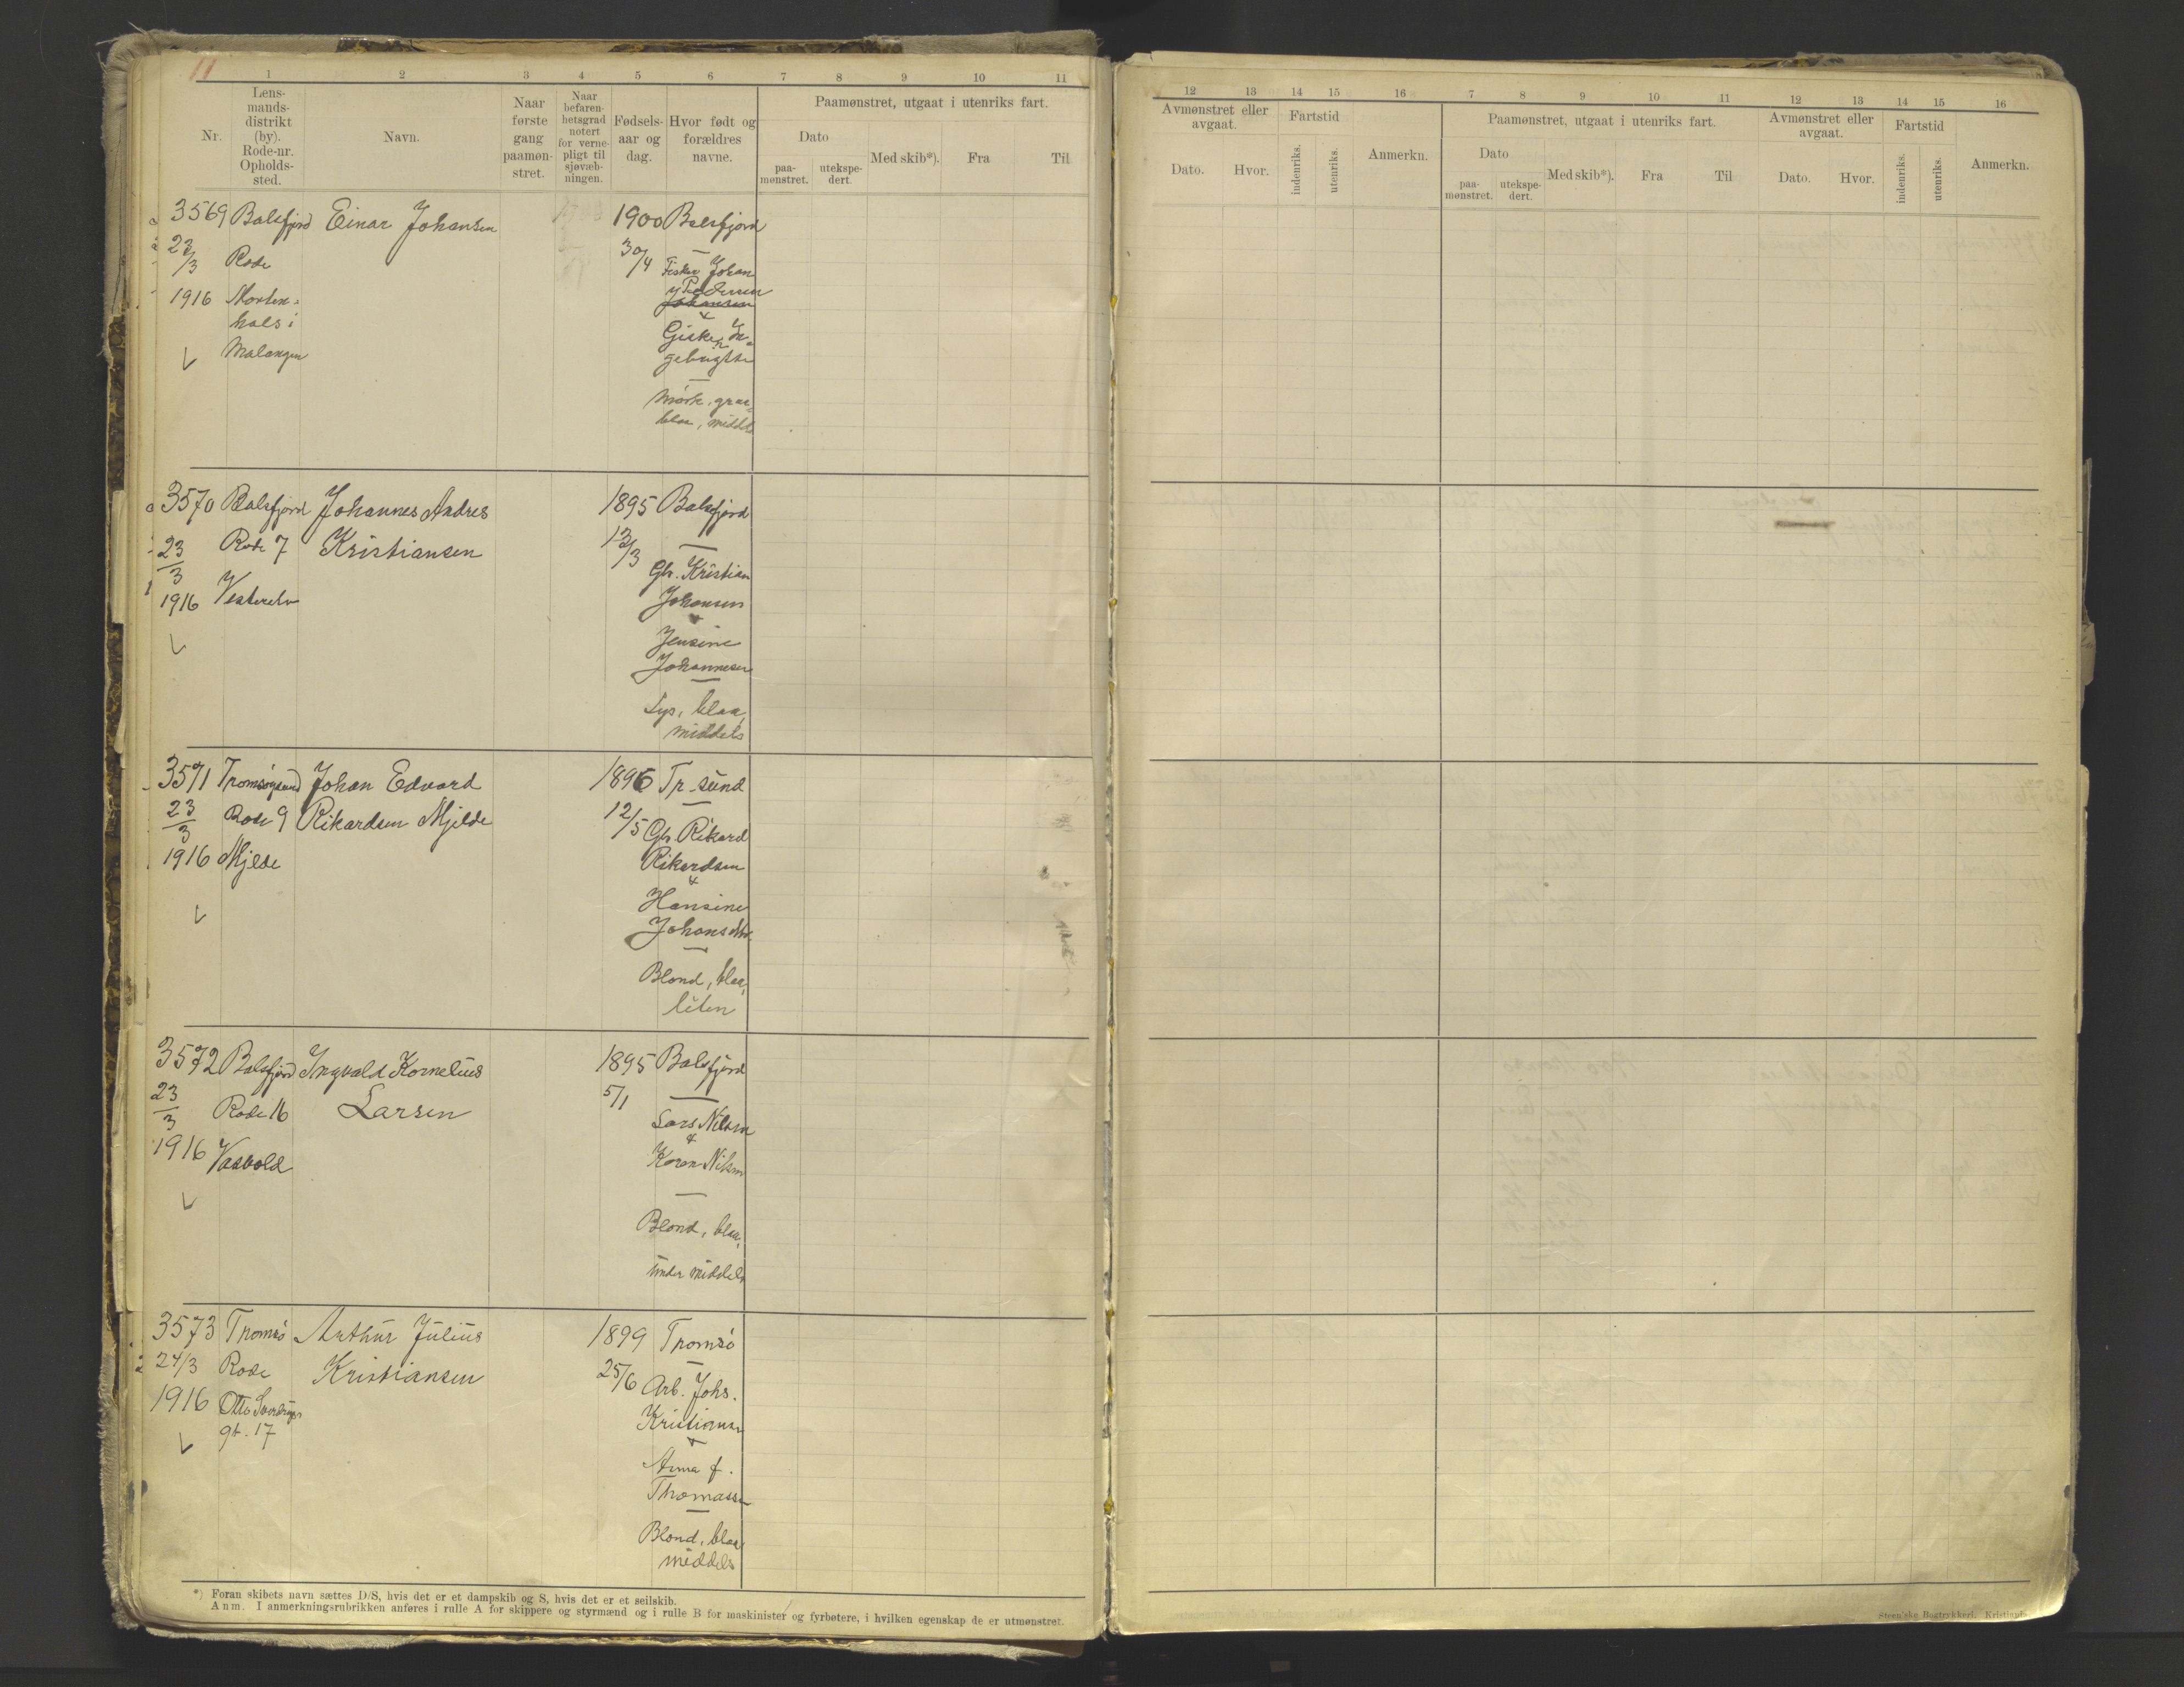 11
1 2 3 4 5 6 7 8 9 10 11
Nr.
Lens-
mands-
distrikt
(by).
Rode-nr.
Opholds-
sted.
Navn.
Naar
første
gang
paamøn-
stret.
Naar
befaren-
hetsgrad
notert
for verne-
pligt til
sjøvæb-
ningen.
Fødsels-
aar og
dag.
Hvor født og
forældres
navne.
Paamønstret, utgaat i utenriks fart.
Dato
paa-
mønstret.
utekspe-
dert.
Med skib*).
Fra
Til
3569 Balsfjord Einar Johansen 1900 Balsfjord
23/3 Rode 30/4
1916 Morten-
hals i
Malangen
Fisker Johan
Pedersen
Johansen
&
Giske In-
gebrigtsen
Mörk, graa-
blaa, middels
3570 Balsfjord Johannes Andres 1895 Balsfjord
23/3 Rode 7 Kristiansen 13/3
1916 Vesterelv
Gb. Kristian
Johansen
&
Jensine
Johannesen
Lys, blaa,
middels
3571 Tromsøysund Johan Edvard 1896 Tr-sund
23/3 Rode 9 Rikardsen Mjelde 12/5
1916 Mjelde
Gb. Rikard
Rikardsen
&
Hansine
Blond, blaa,
liten
3572 Balsfjord Ingvald Kornelius 1895 Balsfjord
23/3 Rode 16 Larsen 5/1
1916
Lars Nilsen
&
Karen Nilsen
Blond, blaa,
under middels
3573 Tromsö Arthur Julius 1899 Tromsö
24/3 Rode Kristiansen 25/6
1916 Otto Sverdrups
gt. 17
Arb. Johs.
Kristiansen
&
Anna f.
Thomassen
Blond, blaa
middels
*) Foran skibets navn sættes D/S, hvis det er et dampskib og S, hvis det er et seilskib.
Anm. I anmerkningsrubrikken anføres i rulle A for skippere og styrmænd og i rulle B for maskinister og fyrbøtere, i hvilken egenskap de er utmønstret.
12 13 14 15 16 7 8 9 10 11 12 13 14 15 16
Avmønstret eller
avgaat.
Dato.
Hvor.
Fartstid
indenriks.
utenriks.
Anmerkn.
Paamønstret, utgaat i utenriks fart.
Dato
paa-
mønstret.
utekspe-
dert.
Med skib*).
Fra
Til
Avmønstret eller
avgaat.
Dato.
Hvor.
Fartstid
indenriks.
utenriks.
Anmerkn.
Steen'ske Bogtrykkeri. Kristiania